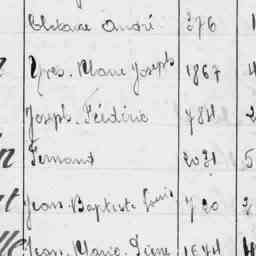 André 376 1
Yves. Marie Joseph 1867 4
Joseph. Frédéric 784 2
n Fernand 2031 5
t Jean. Baptiste Louis 720 2
Jean. Marie. Pierre 1674 4